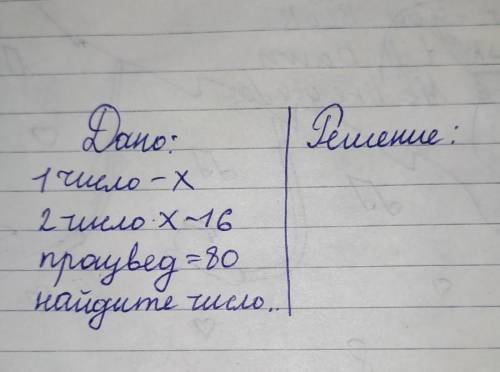 Дано:
Решение:
1 число - х
2 число х - 16
працвед = 80
найдите число..